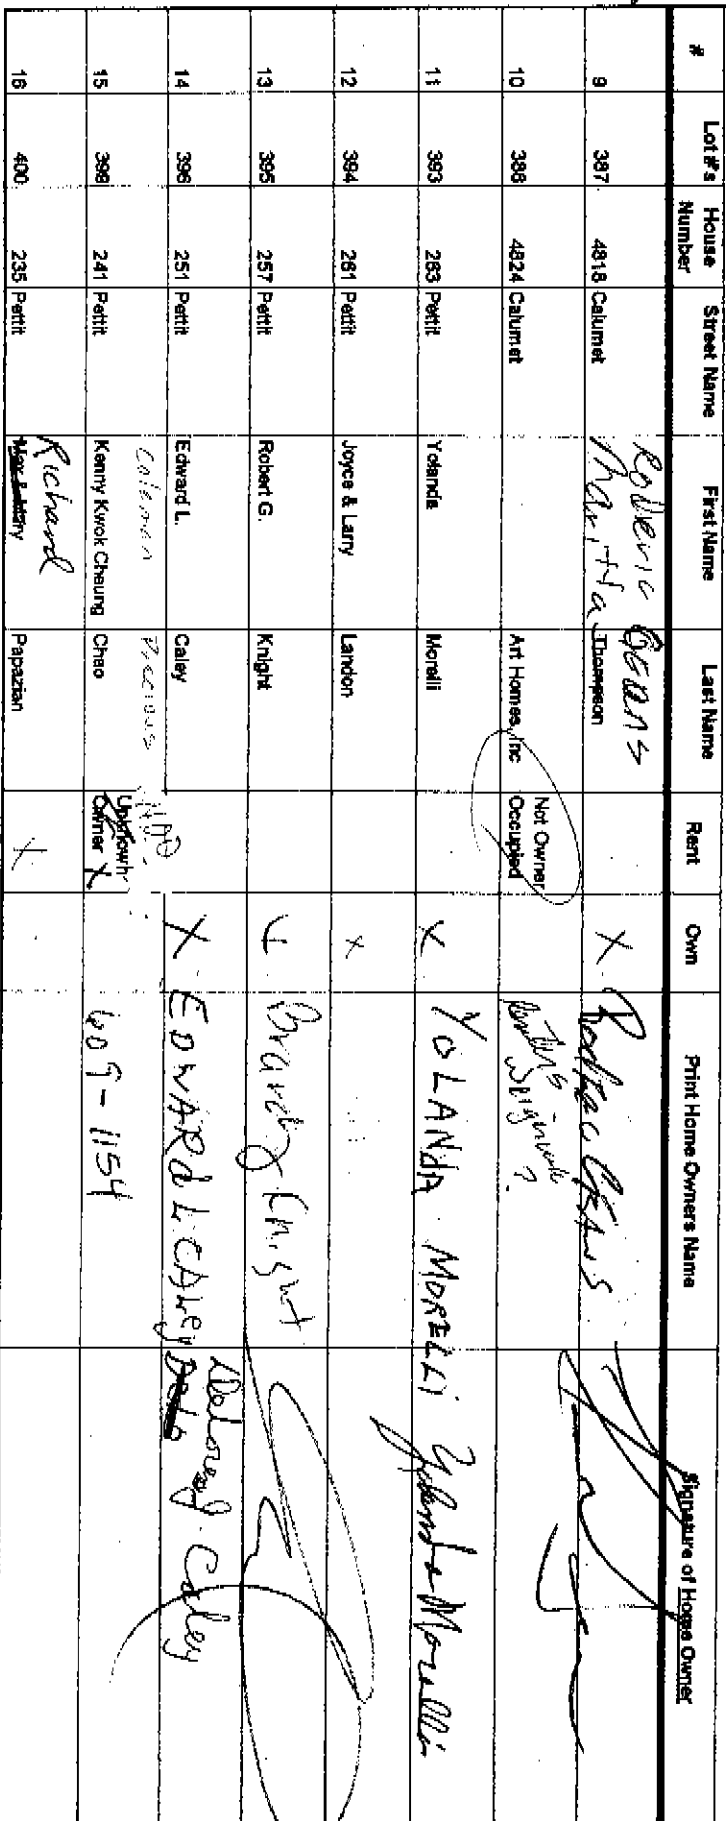 # Lot #'s House Number Street Name First Name Last Name Rent Own Print Home Owners Name Signature of Home Owner
9 387 4818 Calumet Thompson X
10 388 4824 Calumet Art Homes, Inc Not Owner Occupied ?
11 393 263 Pettit Yolanda Morelli X YOLANDA MORELLI Yolanda Morelli
12 394 261 Pettit Joyce & Larry Landon X
13 395 257 Pettit Robert G. Knight Brandy Knight
14 396 251 Pettit Edward L. Caley X EDWARD L CALEY Delores J. Caley
Coleman Precious
15 398 241 Pettit Kenny Kwok Cheung Chao Unknown Owner X 609-1154
Richard
16 400 235 Pettit Papazian X